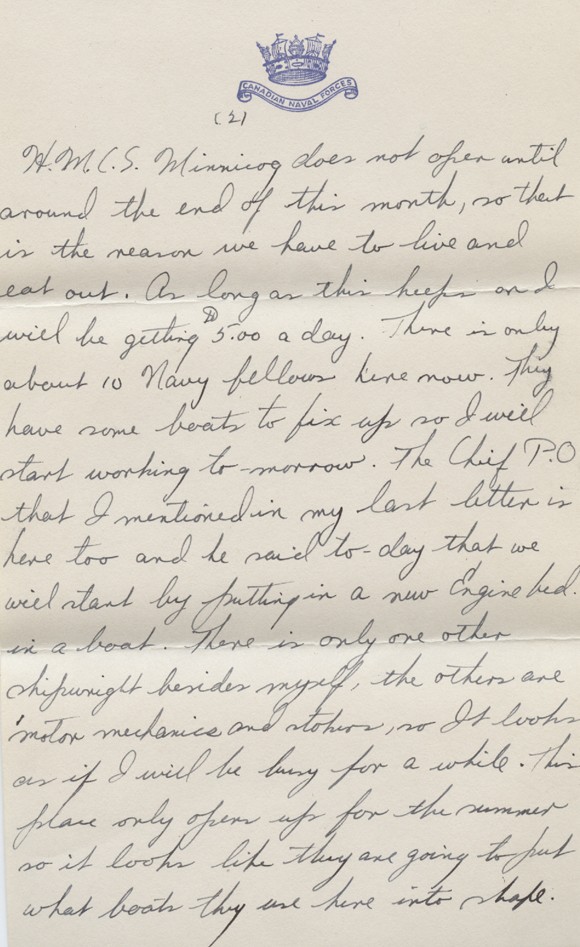 CANADIAN NAVAL FORCES
(2)
H.M.C.S. Minnicog does not open until
around the end of this month, so that
is the reason we have to live and
eat out. As long as this keeps on I
will be getting $5.00 a day. There is only
about 10 Navy fellows here now. They
have some boats to fix up so I will
start working to-morrow. The Chief P.O
that I mentioned in my last letter is
here too and he said to-day that we
will start by putting in a new Engine bed.
in a boat. There is only one other
shipwright besides myself, the others are
motor mechanics and stokers, so It looks
as if I will be busy for a while. This
place only opens up for the summer
so it looks like they are going to put
what boats they use here into shape.